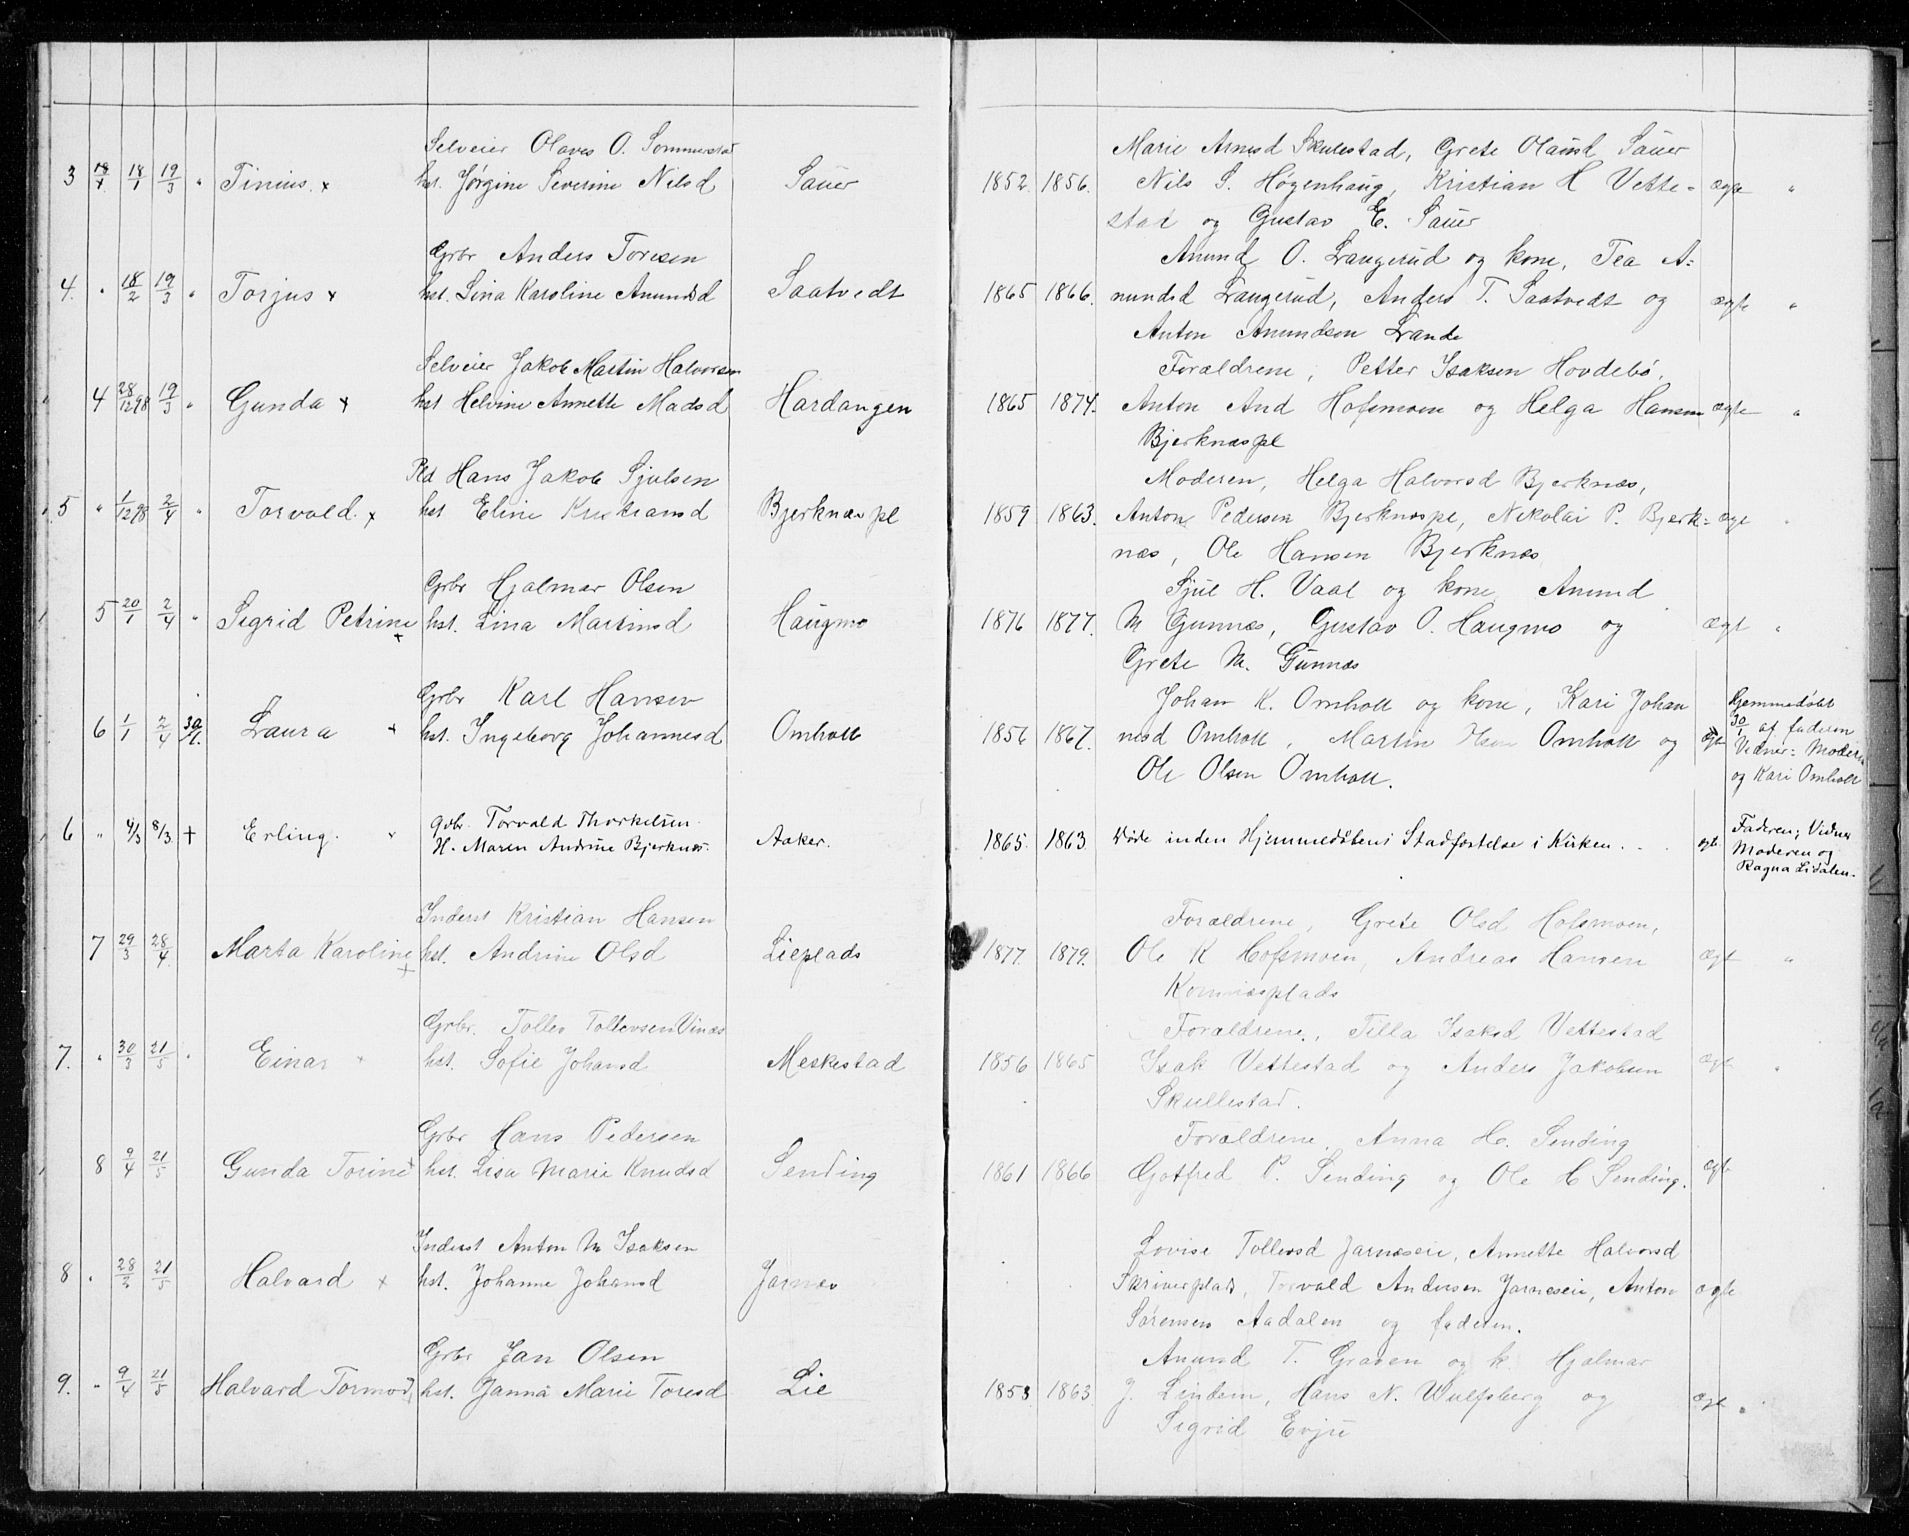 Selveier Olaves O. Sommerstad
3 18/1 19/3 " Tinius. x hst. Jørgine Severine Nilsd Sauer
Grbr Anders Toresen
4. " 18/2 19/3 " Torjus x hst. Lina Karoline Anundsd Saatvedt
Selveier Jakob Martin Halvorsen
4 28/12 98 19/3 " Gunda x hst Helvine Annette Madsd Hardangen
Pld Hans Jakob Sjulsen
5 " 1/12 98 2/4 " Torvald. x hst Eline Kristiansd Bjerknæs pl
Grbr Hjalmar Olsen
5 20/1 2/4 " Sigrid Petrine x hst. Lina Martinsd Haugmo
Grbr Karl Hansen
6 1/1 2/4 30/1. Laura x hst. Ingeborg Johannesd Omholt
Gbr. Torvald Thorkelsen.
6 " 4/3 8/3 + Erling. " H. Maren Andrine Bjerknes. Aaker.
Inderst Kristian Hansen
7 29/3 28/4 Marta Karoline x hst. Andrine Olsd Lieplads
Grbr. Tollev Tollevsen Vinæs
7. " 30/3 21/5 " Einar x hst. Sofie Johansd Meskestad
Grbr Hans Pedersen
8 9/4 21/5 Gunda Torine x hst. Lisa Marie Knudsd Sending
Inderst Anton M Isaksen
8 " 28/2 21/5 Halvard x hst. Johanne Johansd Jarnæs
Grbr Jan Olsen
9. " 9/4 21/5 Halvard Tormod hst. Janna Marie Toresd Lie
Marie Arnesd Skulestad, Grete Olausd Sauer
1852 1856. Nils S. Høgenhaug, Kristian H Vette- ægte "
stad og Gustav E. Sauer
Anund O. Langerud og kone, Tea A-
1865 1866. nundsd Langerud, Anders T. Saatvedt og ægte "
Anton Anundsen Lande
Forældrene, Petter Isaksen Hovdebø,
1865 1874. Anton And Hofsmoen og Helga Hansen ægte "
Bjerknæspl
Moderen, Helga Halvorsd Bjerknæs,
1859 1863. Anton Pedersen Bjerknæspl, Nikolai P. Bjerk- ægt "
næs, Ole Hansen Bjerknæs
Sjul H. Vaal og kone, Anund
1876 1877. M Gunnæs, Gustav O. Haugmo og ægt "
Grete M. Gunnæs
Johan K. Omholt og kone, Kari Johan
1856 1867. nesd Omholt, Martin Olsen Omholt og ægte
Ole Olsen Omholt.
Hjemmedøbt
30/1 af faderen
Vidner: Moderen
og Kari Omholt
1865. 1863 Døde inden Hjemmedåbens Stadfæstelse i Kirken. . . ægt.
Faderen; Vidner
Moderen og
Ragna Lidalen.
Forældrene, Grete Olsd Hofsmoen,
1877. 1879. Ole K Hofsmoen, Andreas Hansen ægt "
Kornæsplads
Forældrene, Tilla Isaksd Vettestad
1856 1865 Isak Vettestad og Anders Jakobsen ægt "
Skullestad.
Forældrene, Anna H. Sending
1861 1866 Gotfred P. Sending og Ole H Sending. ægt
Lovise Tollevsd Jarnæseie, Annette Halvorsd
Skriverplads, Torvald Andersen Jarnæseie, Anton ægte
Sørensen Aadalen og faderen.
Anund T. Graven og k. Hjalmar
1853 1863 J. Lindem, Hans N. Wulfsberg og ægt "
Sigrid Evju